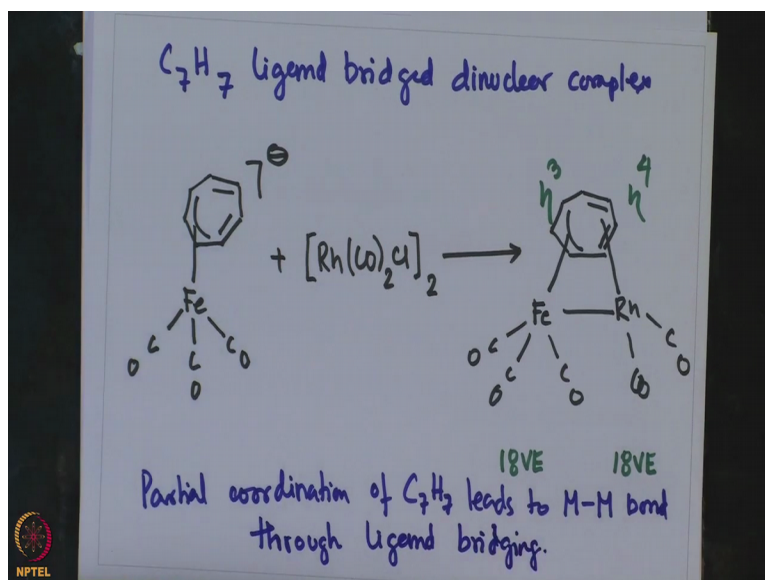 C7H7 ligand bridged dinuclear complex
7⊖
η3 η4
+ [Rh(CO)2Cl]2 ⟶
Fe
C C C
O O O
Fe Rh
C C C CO C
O O O O
18VE 18VE
Partial coordination of C7H7 leads to M-M bond
through ligand bridging.
NPTEL